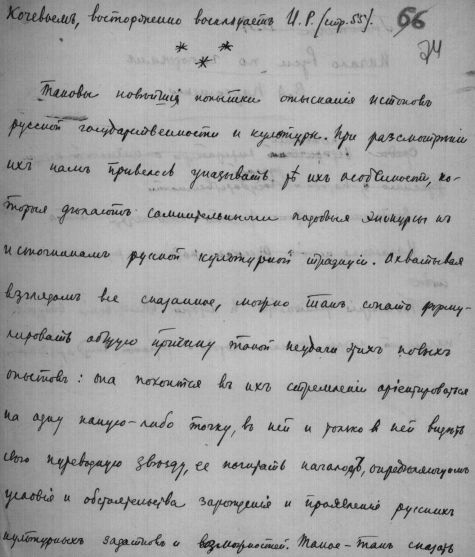 Кочевьемъ, восторженно восклицаетъ И.Р. (стр. 55). 66
74
* * *
Таковы новѣйшія попытки отысканія истоковъ
русской государственности и культуры. При разсмотрѣніи
ихъ намъ пришлось указывать тѣ ихъ особенности, ко-
торыя дѣлаютъ сомнительными подобные экскурсы къ
источникамъ русской культурной традиціи. Охватывая
взглядомъ все сказанное, можно такъ сжато форму-
лировать общую причину такой неудачи этихъ новыхъ
опытовъ: она покоится въ ихъ стремленіи оріентироваться
на одну какую-либо точку, въ ней и только въ ней видѣть
свою путеводную звѣзду, ее почитать началомъ, опредѣляющимъ
условія и обстоятельства зарожденія и проявленія русскихъ
культурныхъ задатковъ и возможностей. Такое-такъ сказать